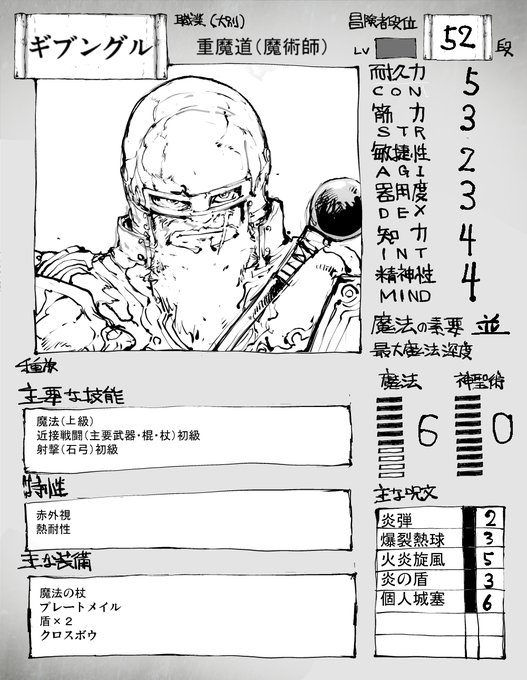 ギブングル
職業(大別)
重魔道(魔術師)
冒険者段位
LV
52段
耐久力 5
CON
筋力 3
STR
敏捷性 2
AGI
器用度 3
DEX
知力 4
INT
精神性 4
MIND
魔法の素要 並
最大魔法深度
魔法 6
神聖術 0
種族
主要な技能
魔法(上級)
近接戦闘(主要武器・棍・杖)初級
射撃(石弓)初級
特性
赤外視
熱耐性
主な装備
魔法の杖
プレートメイル
盾×2
クロスボウ
主な呪文
炎弾 2
爆裂熱球 3
火炎旋風 5
炎の盾 3
個人城塞 6